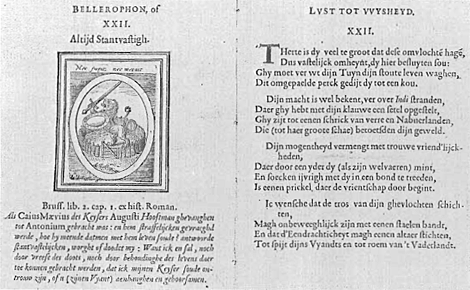 BELLEROPHON, of
XXII.
Altijd Stantvastigh.
Non fugio, nec metuo
Bruss. lib. 2. cap. 1. ex hist. Roman.
Als Caius Mævius des Keysers Augusti Hooftman ghevanghen
tot Antonium gebracht was: en hem straffelijcken gevraeght
werde, hoe hy meende datmen met hem leven soude? antwoorde
stantvastelijcken, worght of doodt my: Want ick en sal, noch
door vreese des doots, noch door behoudinghe des levens daer
toe konnen gebracht werden, dat ick mijnen Keyser soude on-
trouw zijn, of u (zijnen Vyant) aenhanghen en gehoorsamen.
LUST TOT WYSHEYD.
XXII.
T'Herte is dy veel te groot dat dese omvlochte hage,
Dus vastelijck omheynt, dy hier besluyten sou:
Ghy moet ver wt dijn Tuyn dijn stoute leven waghen,
Dit omgepaelde perck gedijt dy tot een kou.
Dijn macht is wel bekent, ver over Indi stranden,
Daer ghy hebt met dijn klauwe een setel opgestelt,
Ghy zijt tot eenen schrick van verre en Nabuerlanden,
Die (tot haer groote schae) beproefden dijn geweld.
Dijn mogentheyd vermengt met trouwe vriend'lijck-
heden,
Daer door een yder dy (als zijn welvaeren) mint,
En soecken ijvrigh met dy in een bond te treeden,
Is eenen prickel, daer de vrientschap door begint.
Ic wensche dat de tros van dijn ghevlochten schich-
ten,
Magh onbeweeghlijck zijn met eenen staelen bandt,
En dat d'Eendrachticheyt magh eenen altaer stichten,
Tot spijt dijns Vyandts en tot roem van 't Vaderlandt.